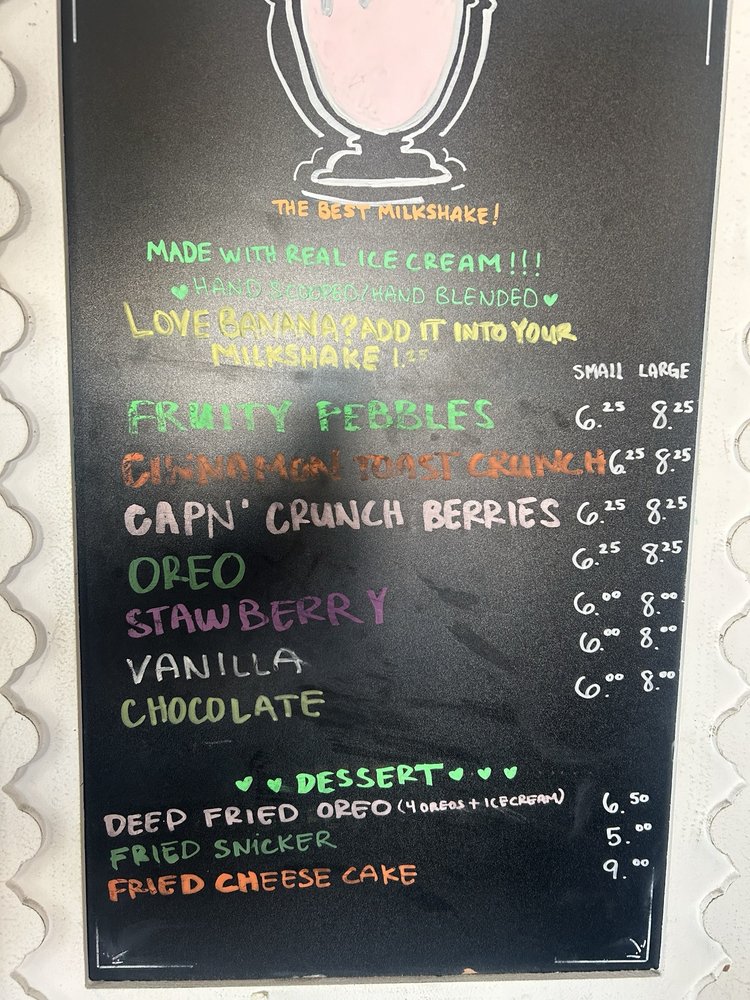 THE BEST MILKSHAKE!
MADE WITH REAL ICE CREAM!!!
♥ HAND SCOOPED/HAND BLENDED ♥
LOVE BANANA? ADD IT INTO YOUR
MILKSHAKE 1.25
SMALL LARGE
FRUITY PEBBLES 6.25 8.25
CINNAMON TOAST CRUNCH 6.25 8.25
CAPN' CRUNCH BERRIES 6.25 8.25
OREO 6.25 8.25
STAWBERRY 6.00 8.00
VANILLA 6.00 8.00
CHOCOLATE 6.00 8.00
♥ ♥ DESSERT ♥ ♥ ♥
DEEP FRIED OREO (4 OREOS + ICECREAM) 6.50
FRIED SNiCKER 5.00
FRIED CHEESE CAKE 9.00